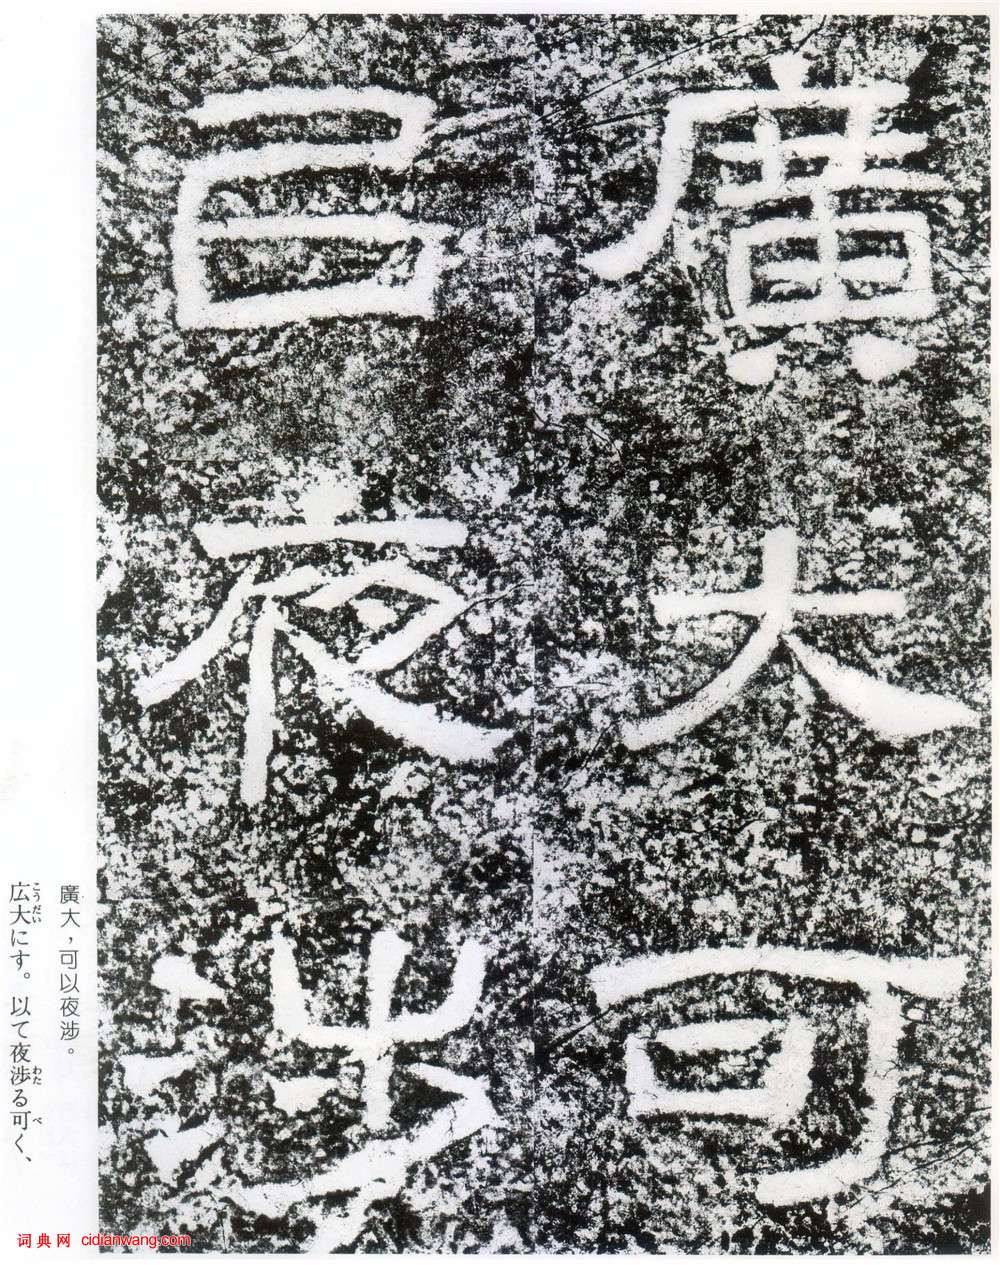 廣大可
㠯夜涉
廣大，可以夜涉。
広大にす。以て夜渉る可く、
こうだい わた べ
词典网 cidianwang.com